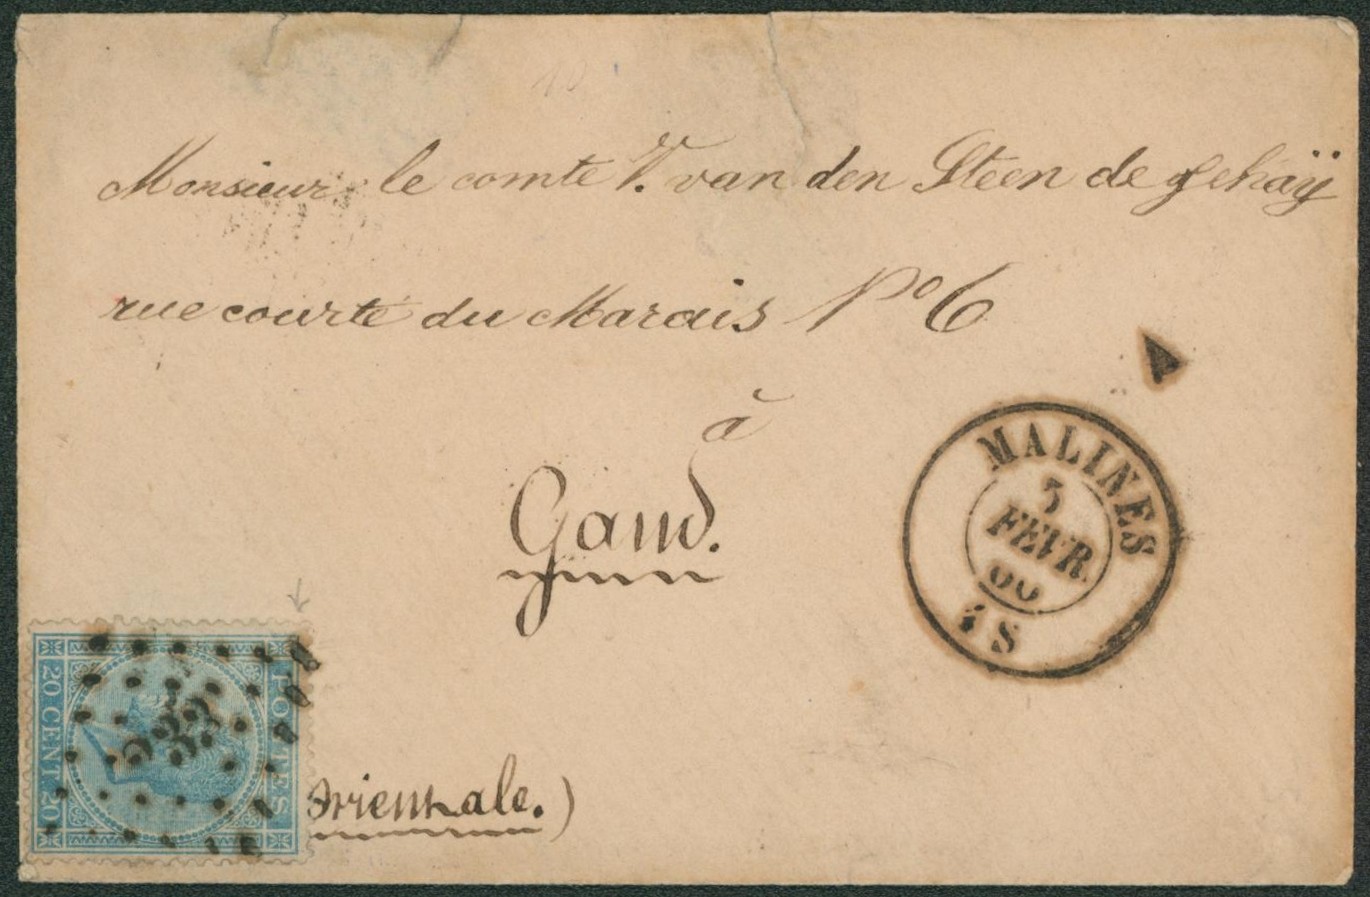 Monsieur le comte V. van den Steen de Jehaÿ
rue courte du Marais Nº 6
à
Gand.
MALINES
5
FEVR
66
4 S
POSTES
20 CENT 20
Orientale.)